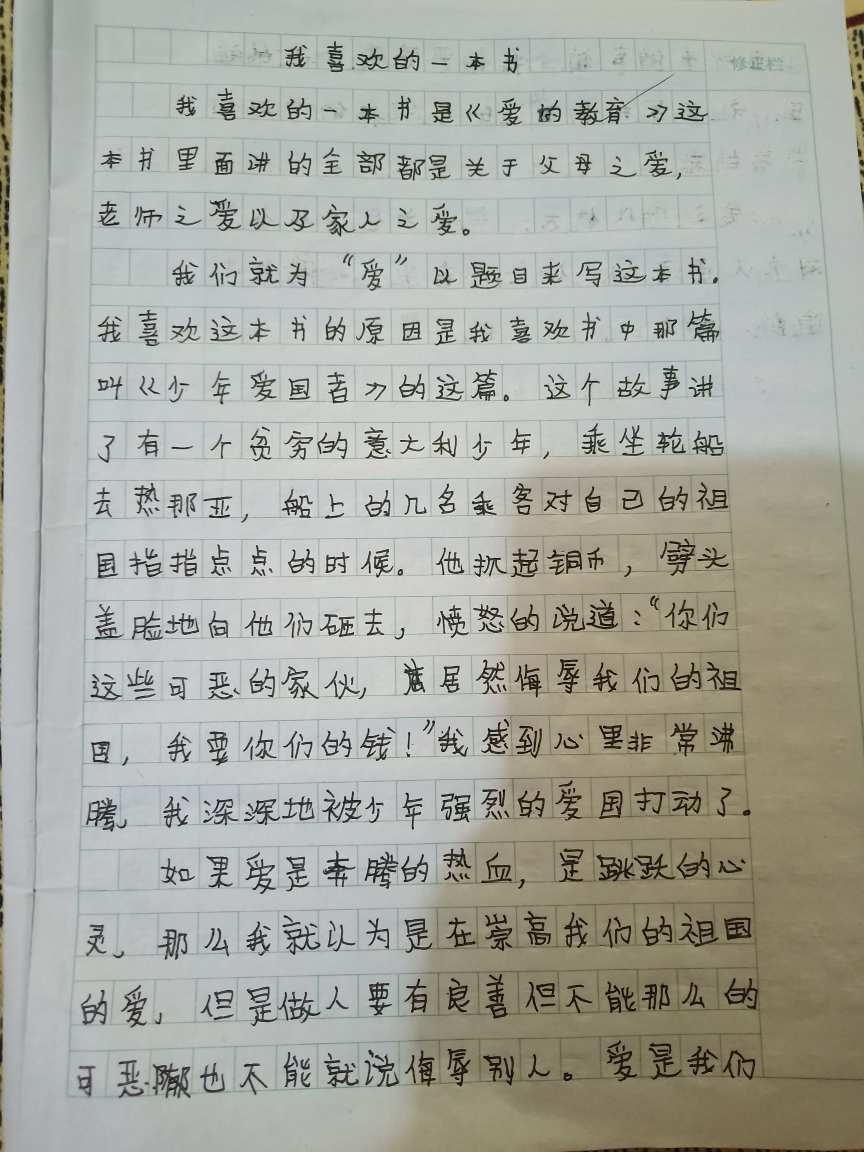 我喜欢的一本书
我喜欢的一本书是《爱的教育》这
本书里面讲的全部都是关于父母之爱，
老师之爱以及家人之爱。
我们就为“爱”以题目来写这本书.
我喜欢这本书的原因是我喜欢书中那篇
叫《少年爱国者》的这篇。这个故事讲
了有一个贫穷的意大利少年，乘坐轮船
去热那亚，船上的几名乘客对自己的祖
国指指点点的时候。他抓起铜币，劈头
盖脸地向他们砸去，愤怒的说道：“你们
这些可恶的家伙，居然侮辱我们的祖
国，我要你们的钱！”我感到心里非常沸
腾，我深深地被少年强烈的爱国打动了。
如果爱是奔腾的热血，是跳跃的心
灵，那么我就以为是在崇高我们的祖国
的爱，但是做人要有良善但不能那么的
可恶也不能就说侮辱别人。爱是我们